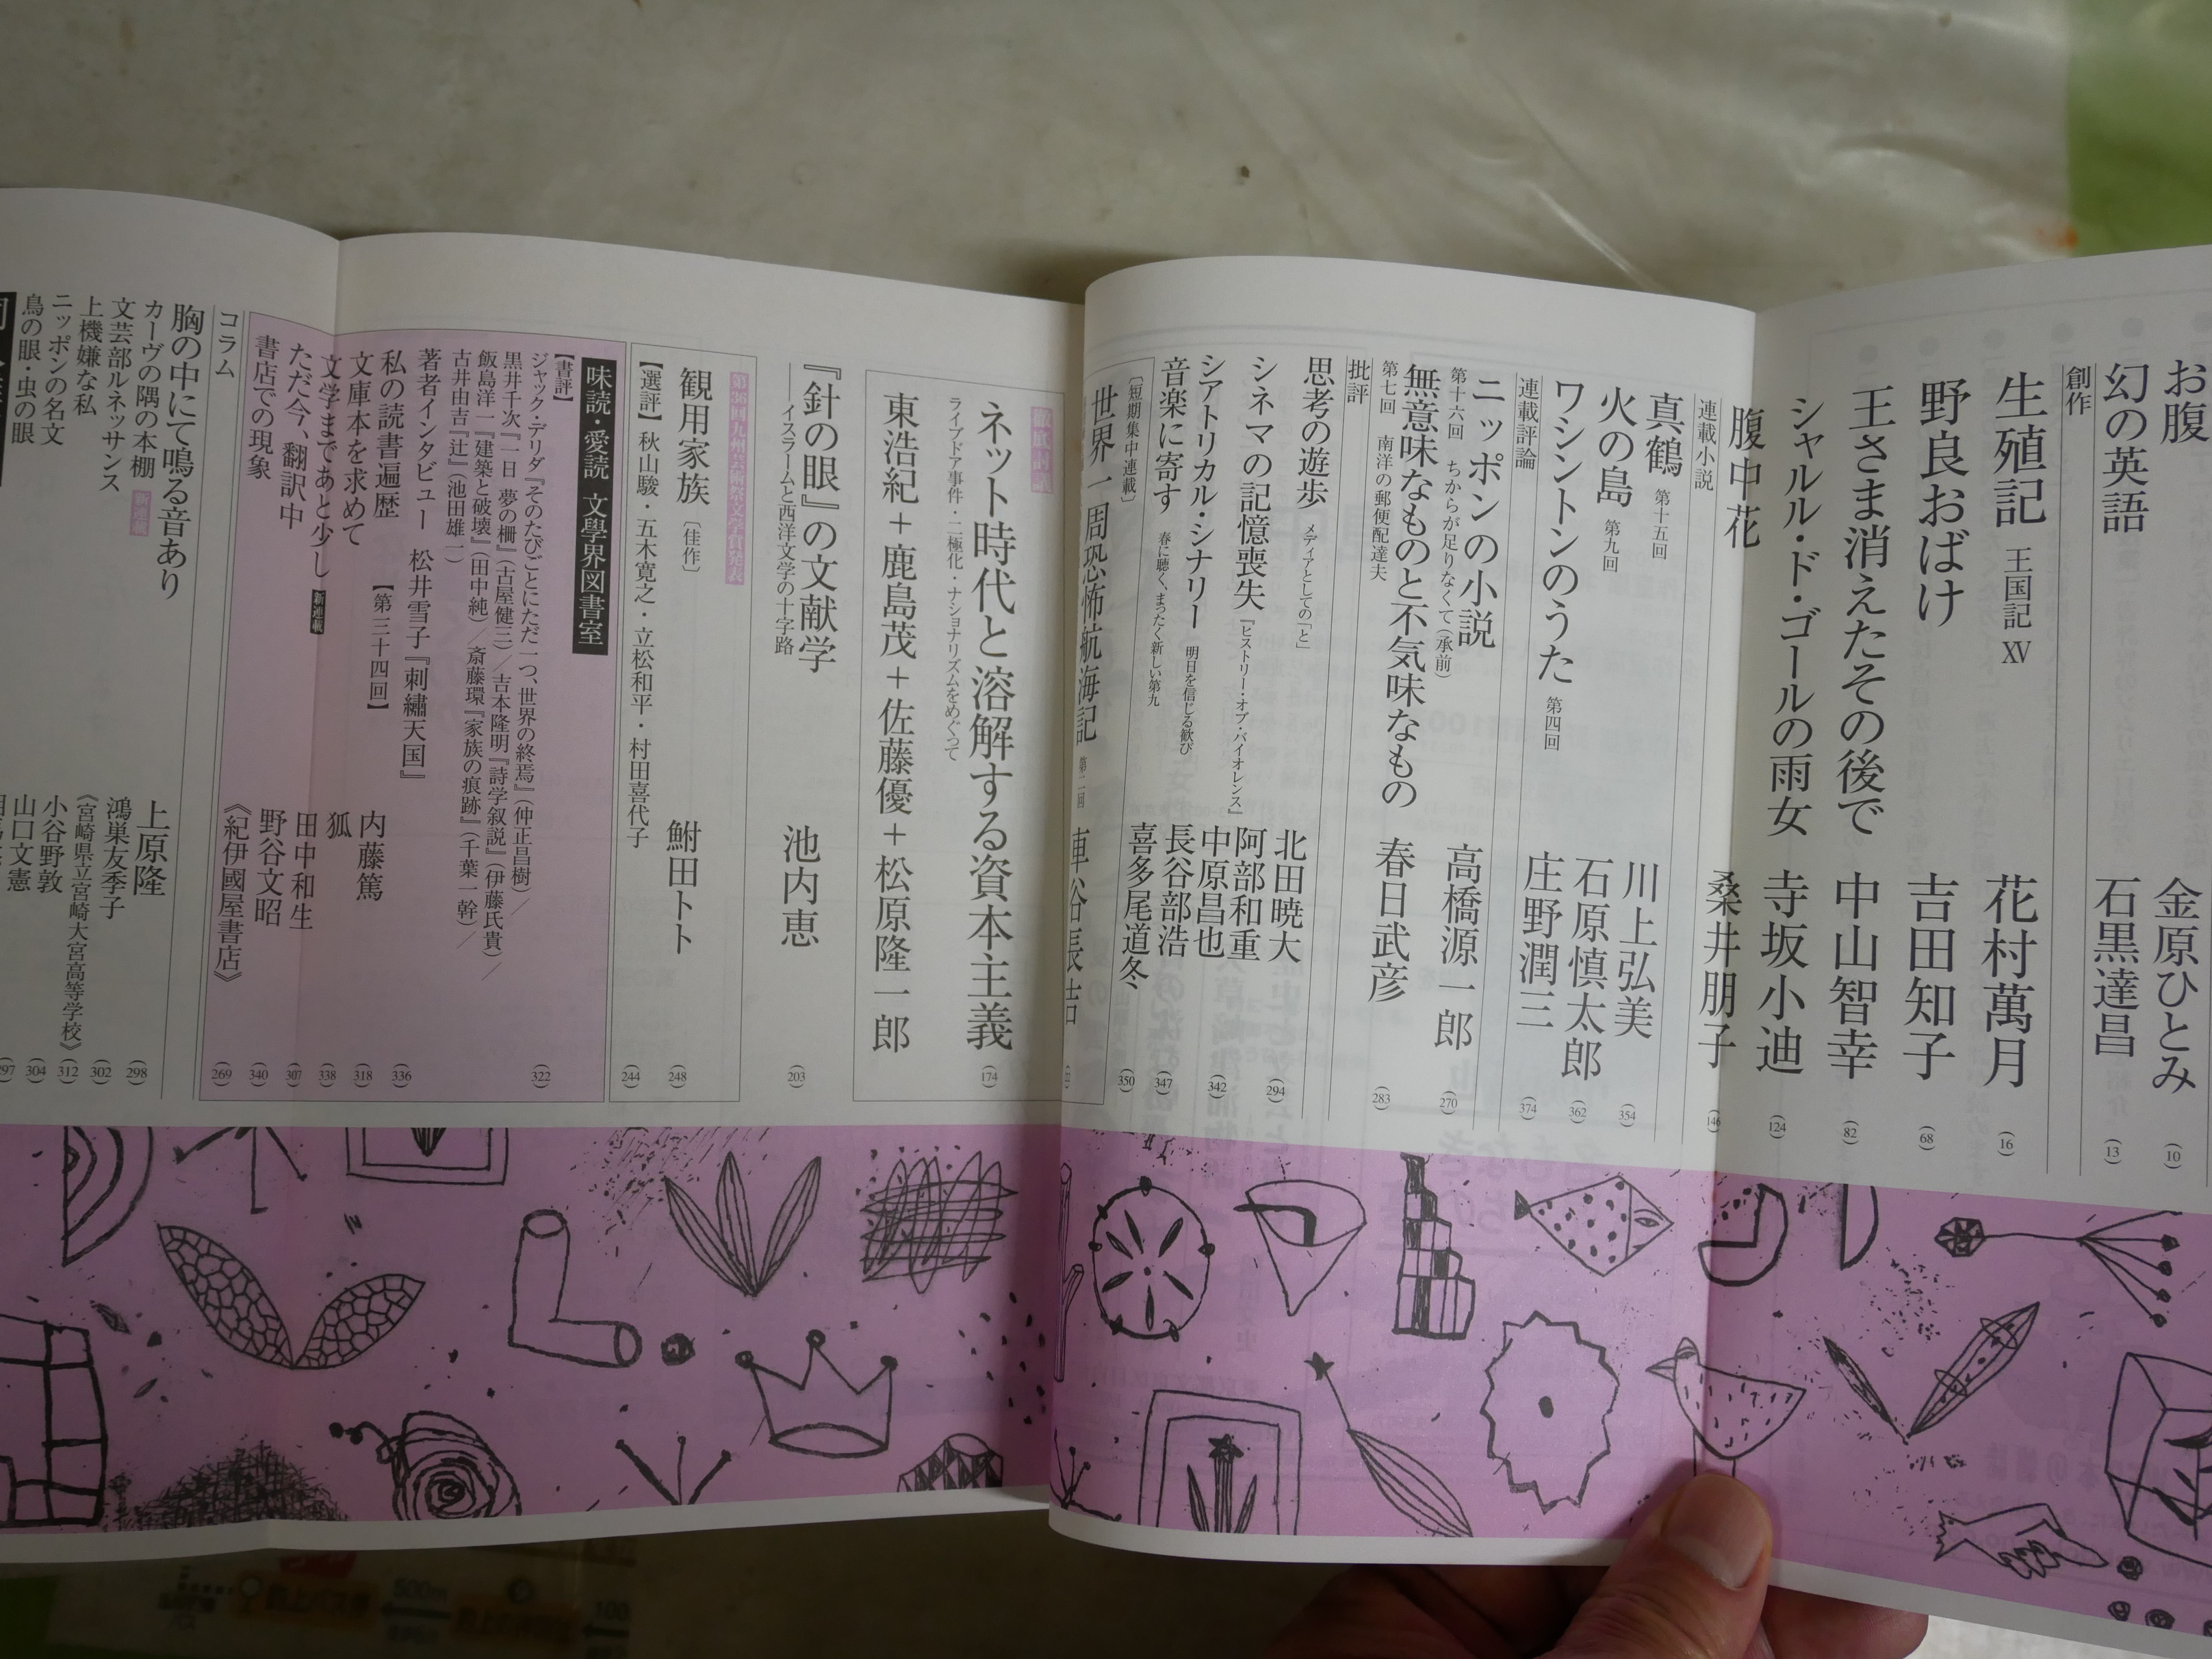 お腹 金原ひとみ (10)
幻の英語 石黒達昌 (13)
創作
生殖記 王国記 XV 花村萬月 (16)
野良おばけ 吉田知子 (68)
王さま消えたその後で 中山智幸 (82)
シャルル・ド・ゴールの雨女 寺坂小迪 (124)
腹中花 桑井朋子 (146)
連載小説
真鶴 第十五回 川上弘美 (354)
火の島 第九回 石原慎太郎 (362)
ワシントンのうた 第四回 庄野潤三 (374)
連載評論
ニッポンの小説 高橋源一郎 (270)
第十六回 ちからが足りなくて(承前)
無意味なものと不気味なもの 春日武彦 (283)
第七回 南洋の郵便配達夫
批評
思考の遊歩 メディアとしての「と」 北田暁大 (294)
シネマの記憶喪失 『ヒストリー・オブ・バイオレンス』 阿部和重 中原昌也 (342)
シアトリカル・シナリー 明日を信じる歓び 長谷部浩 (347)
音楽に寄す 春に聴く、まったく新しい第九 喜多尾道冬 (350)
〔短期集中連載〕
世界一周恐怖航海記 第二回 車谷長吉
徹底討議
ネット時代と溶解する資本主義 (174)
ライブドア事件・二極化・ナショナリズムをめぐって
東浩紀+鹿島茂+佐藤優+松原隆一郎
『針の眼』の文献学 池内恵 (203)
――イスラームと西洋文学の十字路
第36回九州芸術祭文学賞発表
観用家族 〔佳作〕 鮒田トト (248)
【選評】秋山駿・五木寛之・立松和平・村田喜代子 (244)
味読・愛読 文學界図書室
【書評】
ジャック・デリダ『そのたびごとにただ一つ、世界の終焉』(仲正昌樹)/ (322)
黒井千次『一日 夢の柵』(古屋健三)/吉本隆明『詩学叙説』(伊藤氏貴)/
飯島洋一『建築と破壊』(田中純)/斎藤環『家族の痕跡』(千葉一幹)/
古井由吉『辻』(池田雄一)
著者インタビュー 松井雪子『刺繡天国』 (336)
私の読書遍歴 【第三十四回】 内藤篤 (318)
文庫本を求めて 狐 (338)
文学まであと少し 新連載 田中和生 (307)
ただ今、翻訳中 野谷文昭 (340)
書店での現象 《紀伊國屋書店》 (269)
コラム
胸の中にて鳴る音あり 上原隆 (298)
カーヴの隅の本棚 新連載 鴻巣友季子 (302)
文芸部ルネッサンス 《宮崎県立宮崎大宮高等学校》 (312)
上機嫌な私 小谷野敦 (304)
ニッポンの名文 山口文憲 (297)
鳥の眼・虫の眼
500m
100